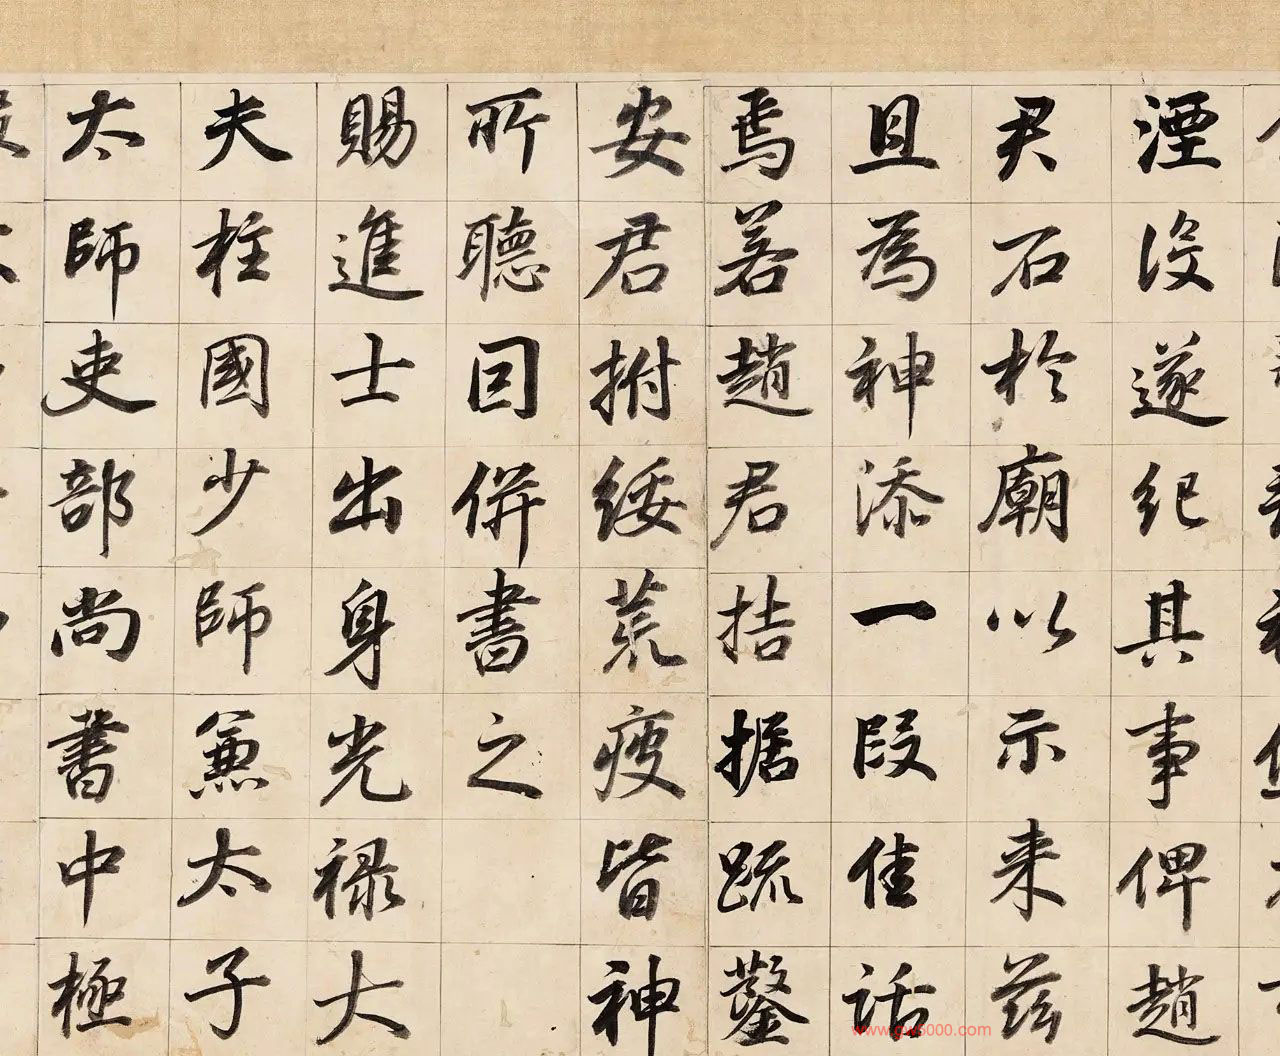 湮没遂纪其事俾趙
君石於廟以示来兹
且為神添一段佳話
焉若趙君拮据疏鑿
安君拊綏荒疫皆神
所聽囙併書之
賜進士出身光禄大
夫柱國少師兼太子
太師吏部尚書中極
www.gw5000.com